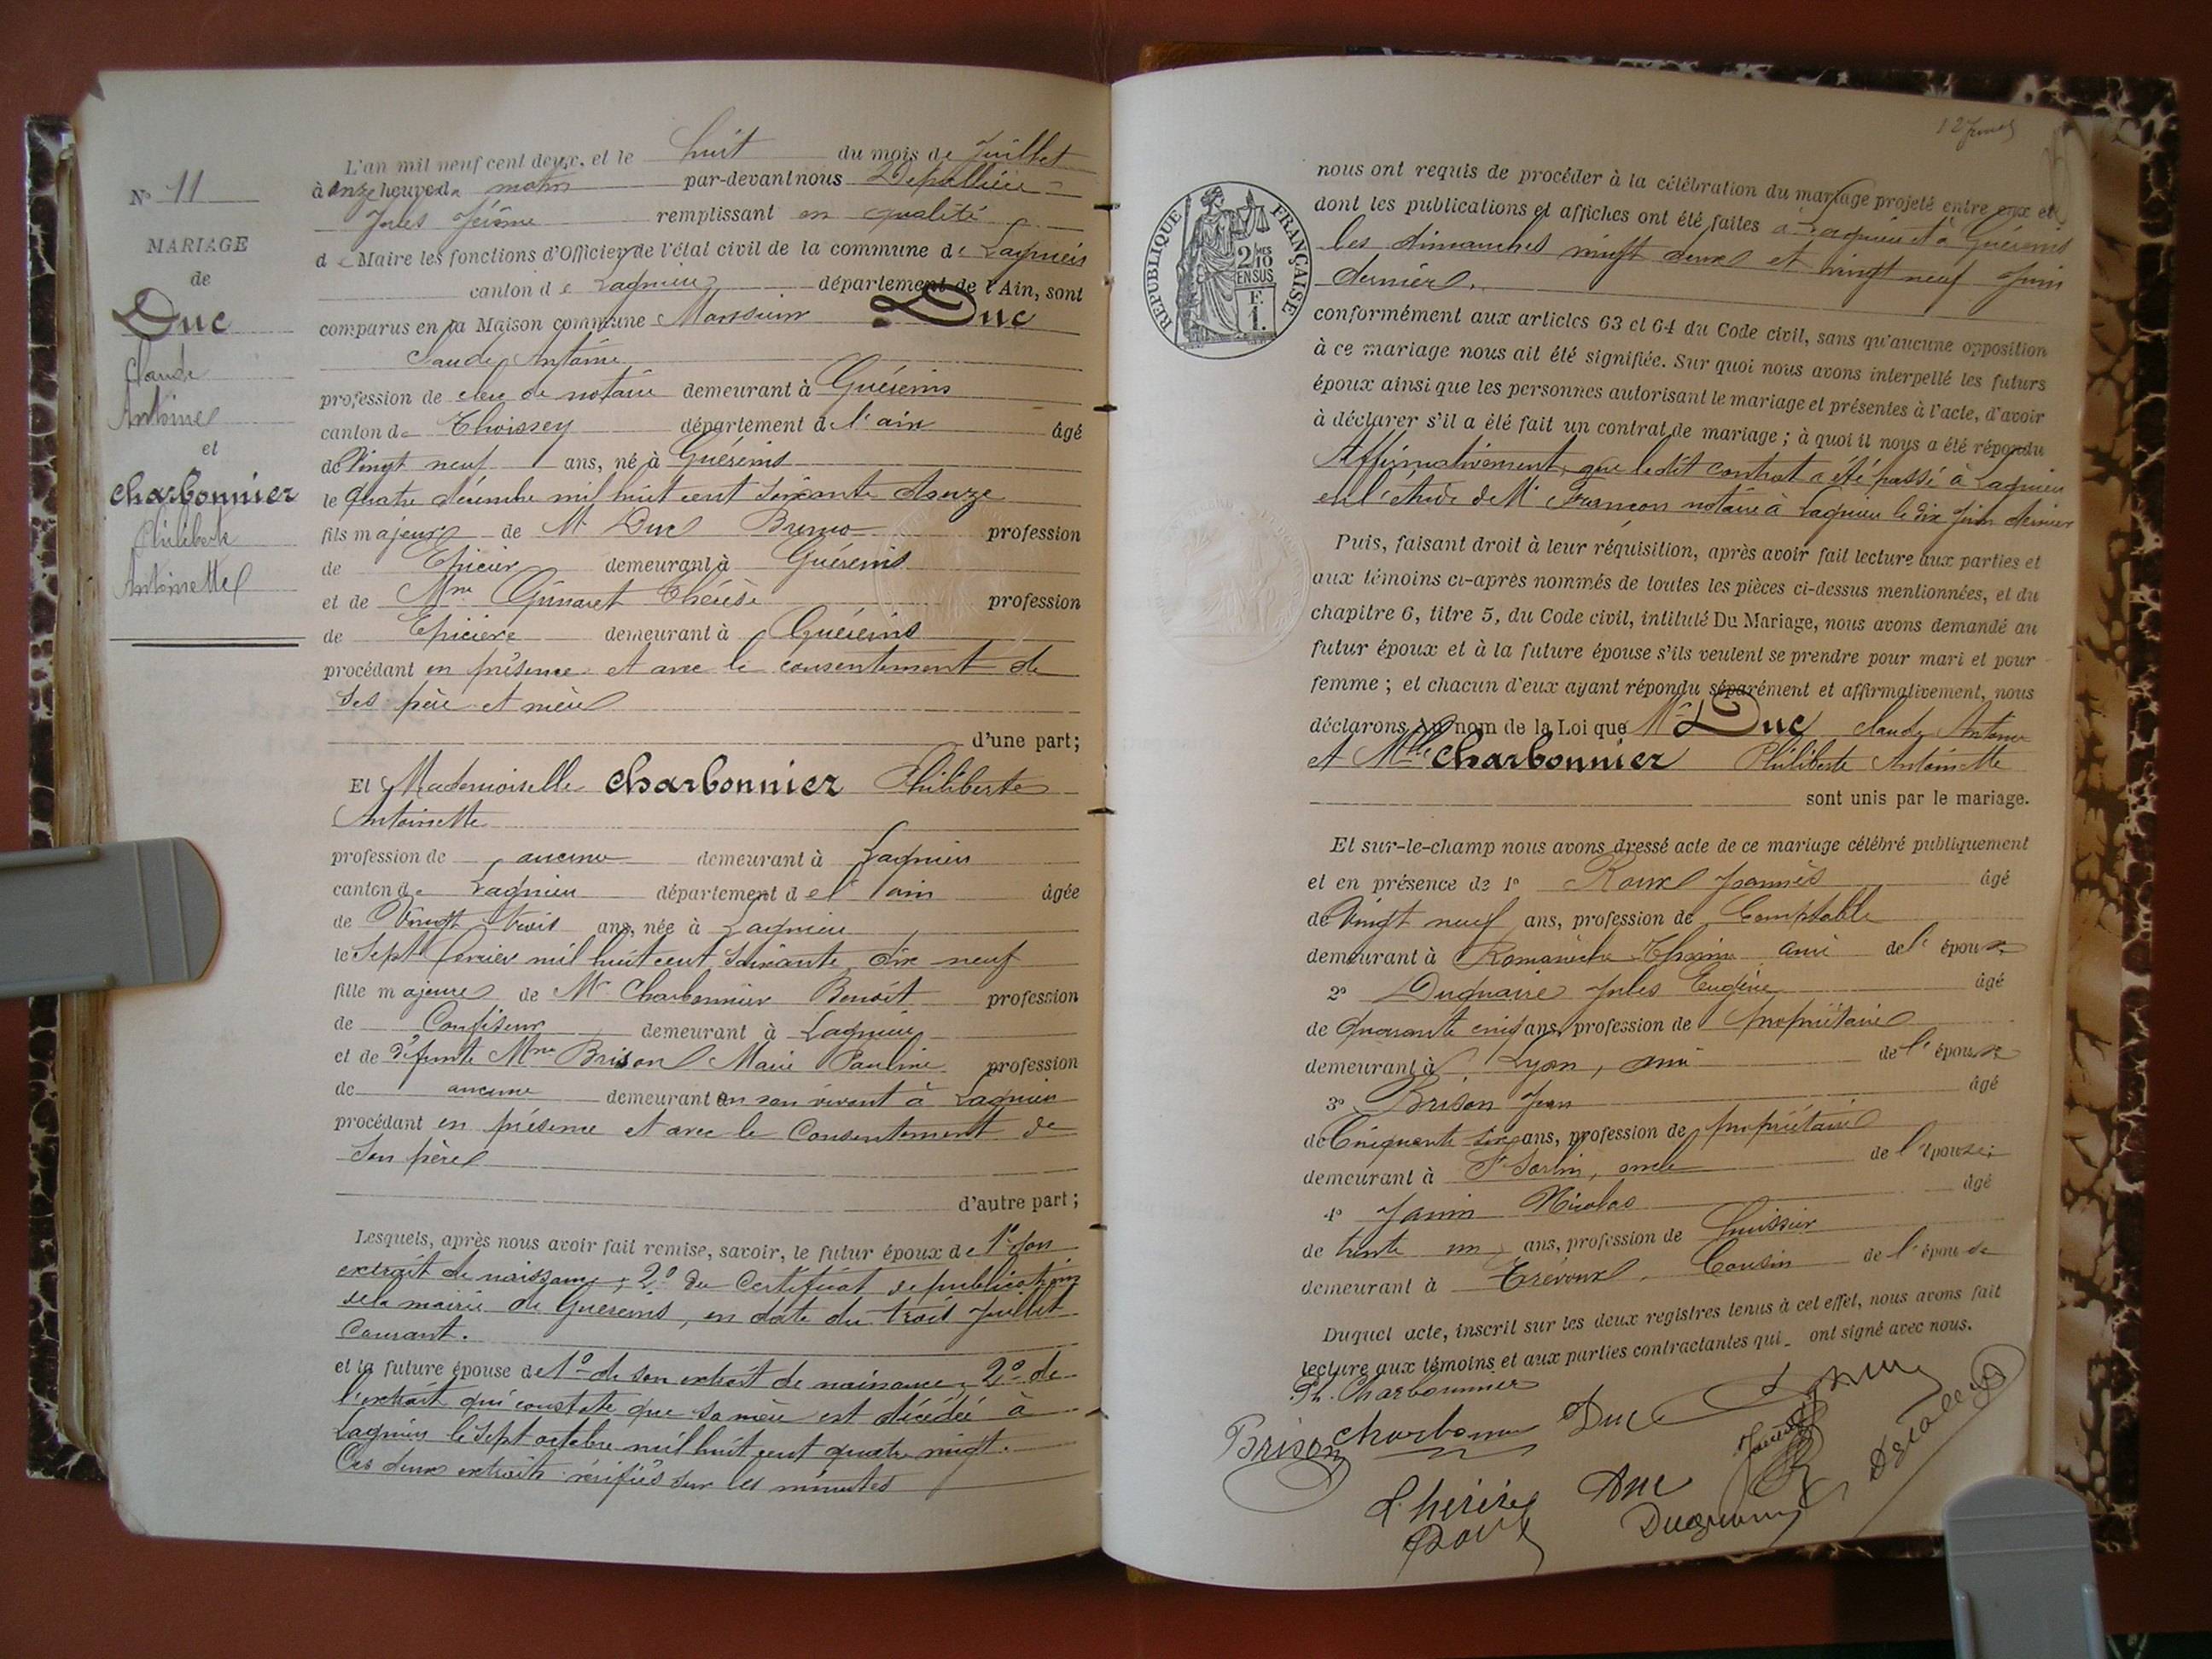 N° 11
MARIAGE
de
Duc
Claude
Antoine
et
Charbonnier
Philiberte
Antoinette
L'an mil neuf cent deux, et le huit du mois de Juillet
à onze heures du matin par-devant nous Depallière
Jules Jérôme remplissant en qualité
de Maire les fonctions d'Officier de l'état civil de la commune de Lagnieu
canton de Lagnieu département de l'Ain, sont
comparus en la Maison commune Monsieur Duc
Claude Antoine
profession de clerc de notaire demeurant à Guéreins
canton de Thoissey département de l'ain âgé
de Vingt neuf ans, né à Guéreins
le quatre décembre mil huit cent soixante douze
fils majeur de Mr Duc Bruno profession
de Epicier demeurant à Guéreins
et de Mme Thérèse profession
de Epicière demeurant à Guéreins
procédant en présence et avec le consentement de
ses père et mère
d'une part;
Et Mademoiselle Charbonnier Philiberte
Antoinette
profession de aucune demeurant à Lagnieu
canton de Lagnieu département de l'ain âgée
de Vingt trois ans, née à Lagnieu
le Sept février mil huit cent soixante dix neuf
fille majeure de Mr Charbonnier Benoit profession
de Confiseur demeurant à Lagnieu
et de défunte Mme Brison Marie Pauline profession
de aucune demeurant en son vivant à Lagnieu
procédant en présence et avec le Consentement de
son père
d'autre part;
Lesquels, après nous avoir fait remise, savoir, le futur époux de 1° son
extrait de naissance; 2° du Certificat de publication
de la mairie de Guéreins, en date du trois Juillet
Courant.
et la future épouse de 1° de son extrait de naissance, 2° de
l'extrait qui constate que sa mère est décédée à
Lagnieu le sept octobre mil huit cent quatre vingt.
Ces deux extraits vérifiés sur les minutes
RÉPUBLIQUE FRANÇAISE
2/10
EN SUS
F.
1.
nous ont requis de procéder à la célébration du mariage projeté entre eux et
dont les publications et affiches ont été faites à Lagnieu et à Guéreins
les dimanches vingt deux et vingt neuf Juin
dernier.
conformément aux articles 63 et 64 du Code civil, sans qu'aucune opposition
à ce mariage nous ait été signifiée. Sur quoi nous avons interpellé les futurs
époux ainsi que les personnes autorisant le mariage et présentes à l'acte, d'avoir
à déclarer s'il a été fait un contrat de mariage; à quoi il nous a été répondu
Affirmativement, que ledit contrat a été passé à Lagnieu
en l'étude de Me Françon notaire à Lagnieu le dix Juin dernier
Puis, faisant droit à leur réquisition, après avoir fait lecture aux parties et
aux témoins ci-après nommés de toutes les pièces ci-dessus mentionnées, et du
chapitre 6, titre 5, du Code civil, intitulé Du Mariage, nous avons demandé au
futur époux et à la future épouse s'ils veulent se prendre pour mari et pour
femme; et chacun d'eux ayant répondu séparément et affirmativement, nous
déclarons Au nom de la Loi que Mr Duc Claude Antoine
et Mlle Charbonnier Philiberte Antoinette
sont unis par le mariage.
Et sur-le-champ nous avons dressé acte de ce mariage célébré publiquement
et en présence de 1° Roux Joannès âgé
de Vingt neuf ans, profession de Comptable
demeurant à Romanèche Thorins ami de l'époux
2° Jules Eugène âgé
de quarante cinq ans, profession de propriétaire
demeurant à Lyon, ami de l'époux
3° Brison Jean âgé
de Cinquante six ans, profession de propriétaire
demeurant à St Sorlin, oncle de l'épouse
4° Janin Nicolas âgé
de trente un ans, profession de huissier
demeurant à Trévoux, Cousin de l'épouse
Duquel acte, inscrit sur les deux registres tenus à cet effet, nous avons fait
lecture aux témoins et aux parties contractantes qui ont signé avec nous.
Ph. Charbonnier
Brison Charbonnier Duc
Duc
Roux